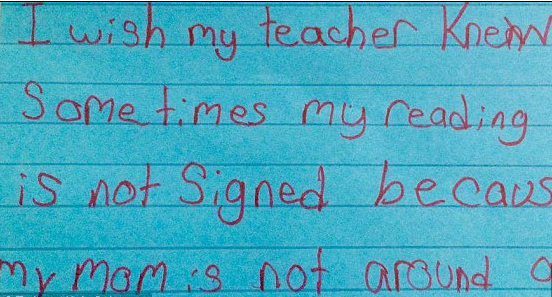 I wish my teacher Knew
Sometimes my reading
is not Signed becaus
my mom is not around a